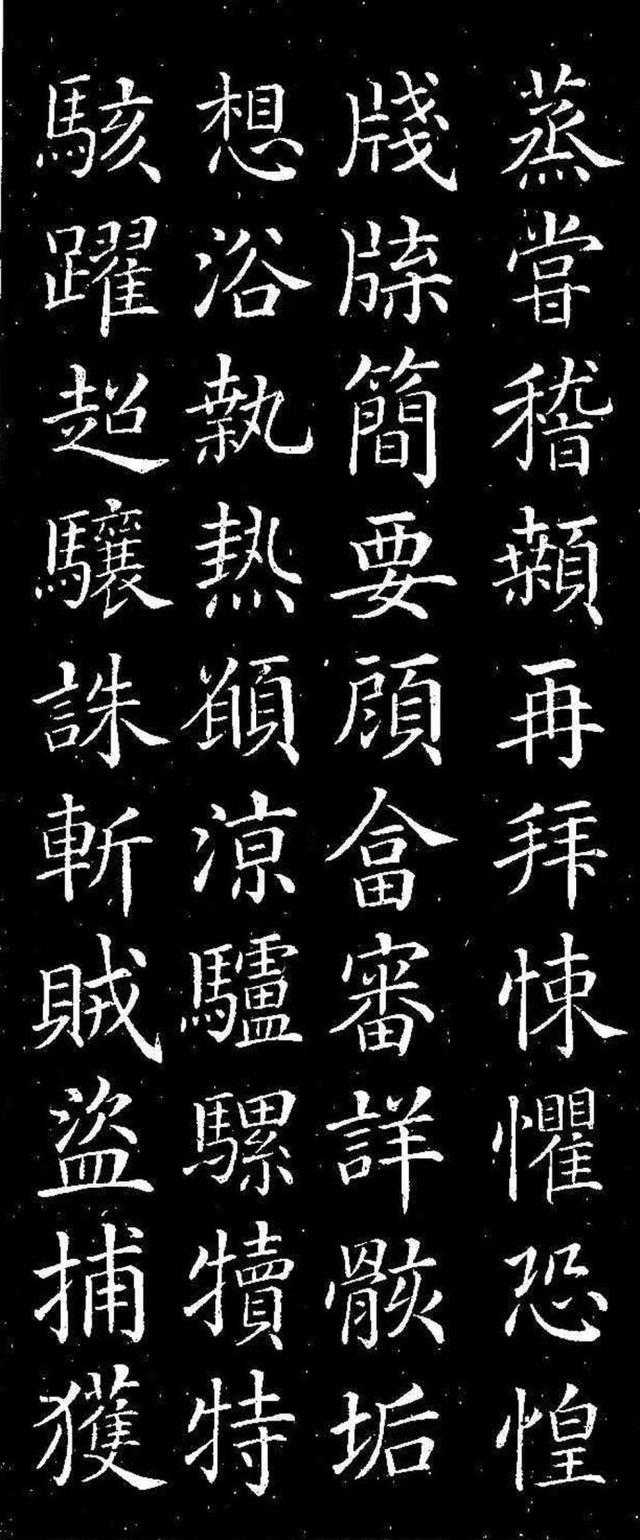 蒸嘗稽顙再拜悚懼恐惶
牋牒簡要顧畣審詳骸垢
想浴執熱願涼驢騾犢特
駭躍超驤誅斬賊盜捕獲